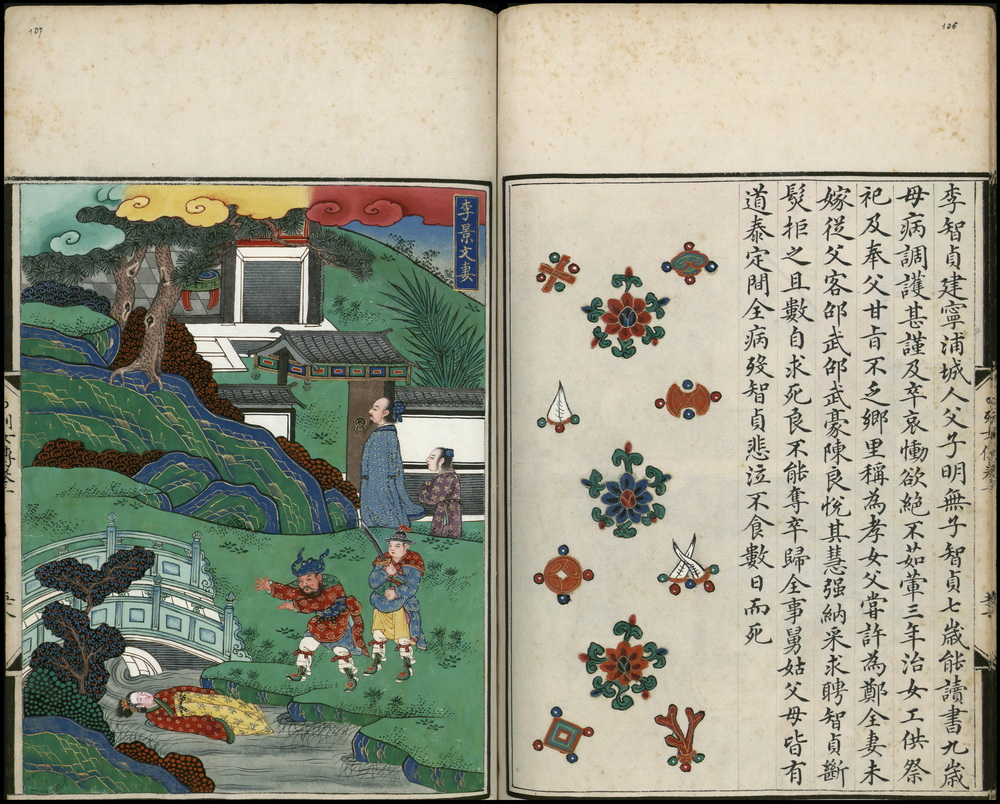 106
李智貞建寧浦城人父子明無子智貞七歲能讀書九歲
母病調護甚謹及卒哀慟欲絕不茹葷三年治女工供祭
祀及奉父甘旨不乏鄉里稱為孝女父嘗許為鄭全妻未
嫁從父客邵武邵武豪陳良悅其慧强納采求聘智貞斷
髮拒之且數自求死良不能奪卒歸全事舅姑父母皆有
道泰定間全病殁智貞悲泣不食數日而死
107
李景文妻